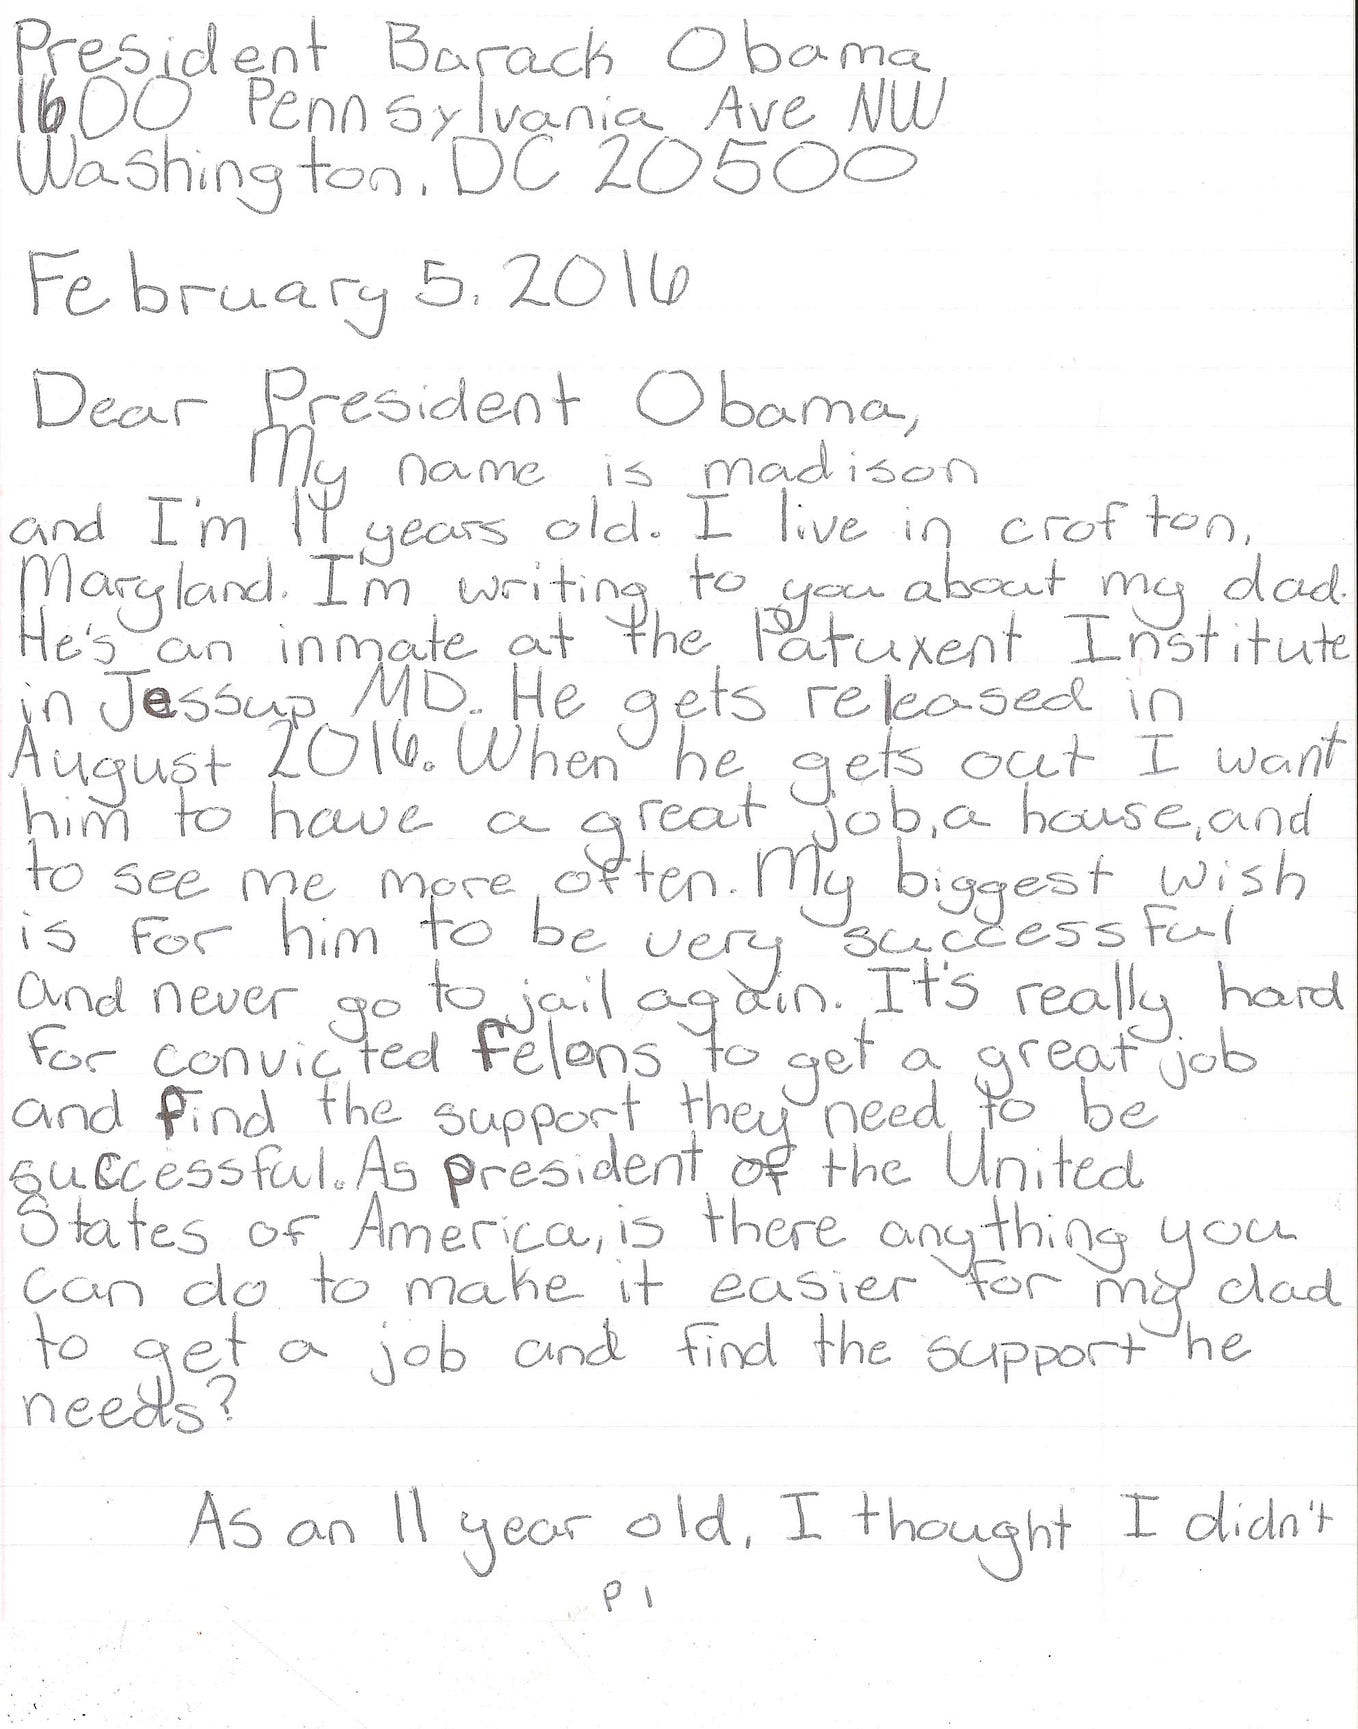 President Barack Obama
1600 Pennsylvania Ave NW
Washington, DC 20500
February 5, 2016
Dear President Obama,
My name is madison
and I'm 11 years old. I live in crofton,
Maryland. I'm writing to you about my dad.
He's an inmate at the Patuxent Institute
in Jessup MD. He gets released in
August 2016. When he gets out I want
him to have a great job, a house, and
to see me more often. My biggest wish
is for him to be very successful
and never go to jail again. It's really hard
for convicted felons to get a great job
and find the support they need to be
successful. As president of the United
States of America, is there anything you
can do to make it easier for my dad
to get a job and find the support he
needs?
As an 11 year old, I thought I didn't
P 1